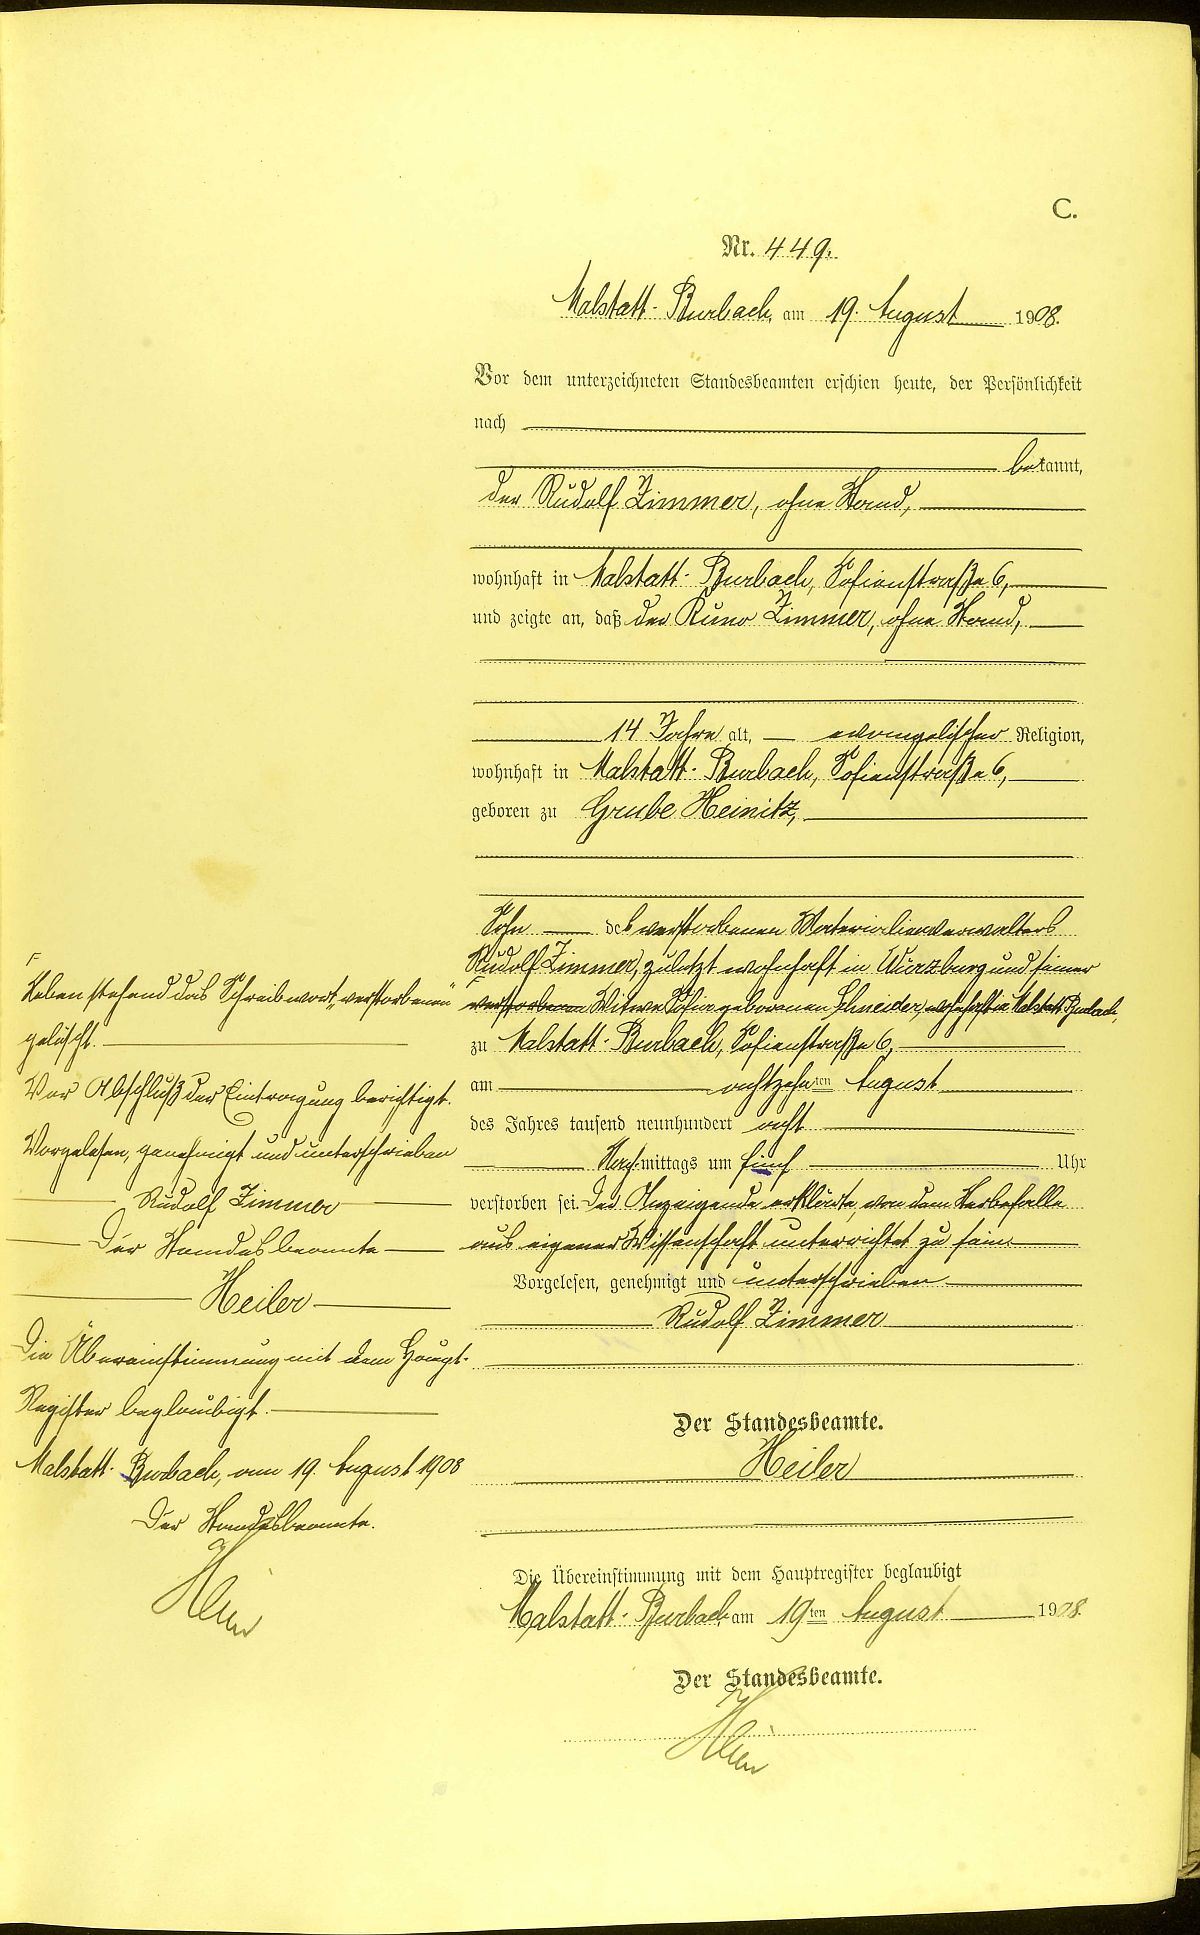 C.
Nr. 449.
Malstatt-Burbach, am 19. August 1908.
Vor dem unterzeichneten Standesbeamten erschien heute, der Persönlichkeit
nach
bekannt,
der Rudolf Zimmer, ohne Stand,
wohnhaft in Malstatt-Burbach, Sofienstraße 6,
und zeigte an, daß der Kuno Zimmer, ohne Stand,
14 Jahre alt, evangelischer Religion,
wohnhaft in Malstatt-Burbach, Sofienstraße 6,
geboren zu Grube Heinitz,
Sohn des verstorbenen Materialienverwalters
Rudolf Zimmer, zuletzt wohnhaft in Würzburg und seiner
verstorbenen Witwe Sofie geborenen Schneider, wohnhaft in Malstatt-Burbach,
zu Malstatt-Burbach, Sofienstraße 6,
am achtzehnten August
des Jahres tausend neunhundert acht
Nachmittags um fünf Uhr
verstorben sei. Der Anzeigende erklärte, von dem Sterbefalle
aus eigener Wissenschaft unterrichtet zu sein.
Vorgelesen, genehmigt und unterschrieben
Rudolf Zimmer
Der Standesbeamte.
Heiler
Die Übereinstimmung mit dem Hauptregister beglaubigt
Malstatt-Burbach am 19ten August 1908.
Der Standesbeamte.
Nebenstehend das Schreibwort „verstorbenen"
gelöscht.
Vor Abschluß der Eintragung berichtigt.
Vorgelesen, genehmigt und unterschrieben
Rudolf Zimmer
Der Standesbeamte
Heiler
Die Übereinstimmung mit dem Haupt-
Register beglaubigt.
Malstatt-Burbach, am 19. August 1908
Der Standesbeamte.